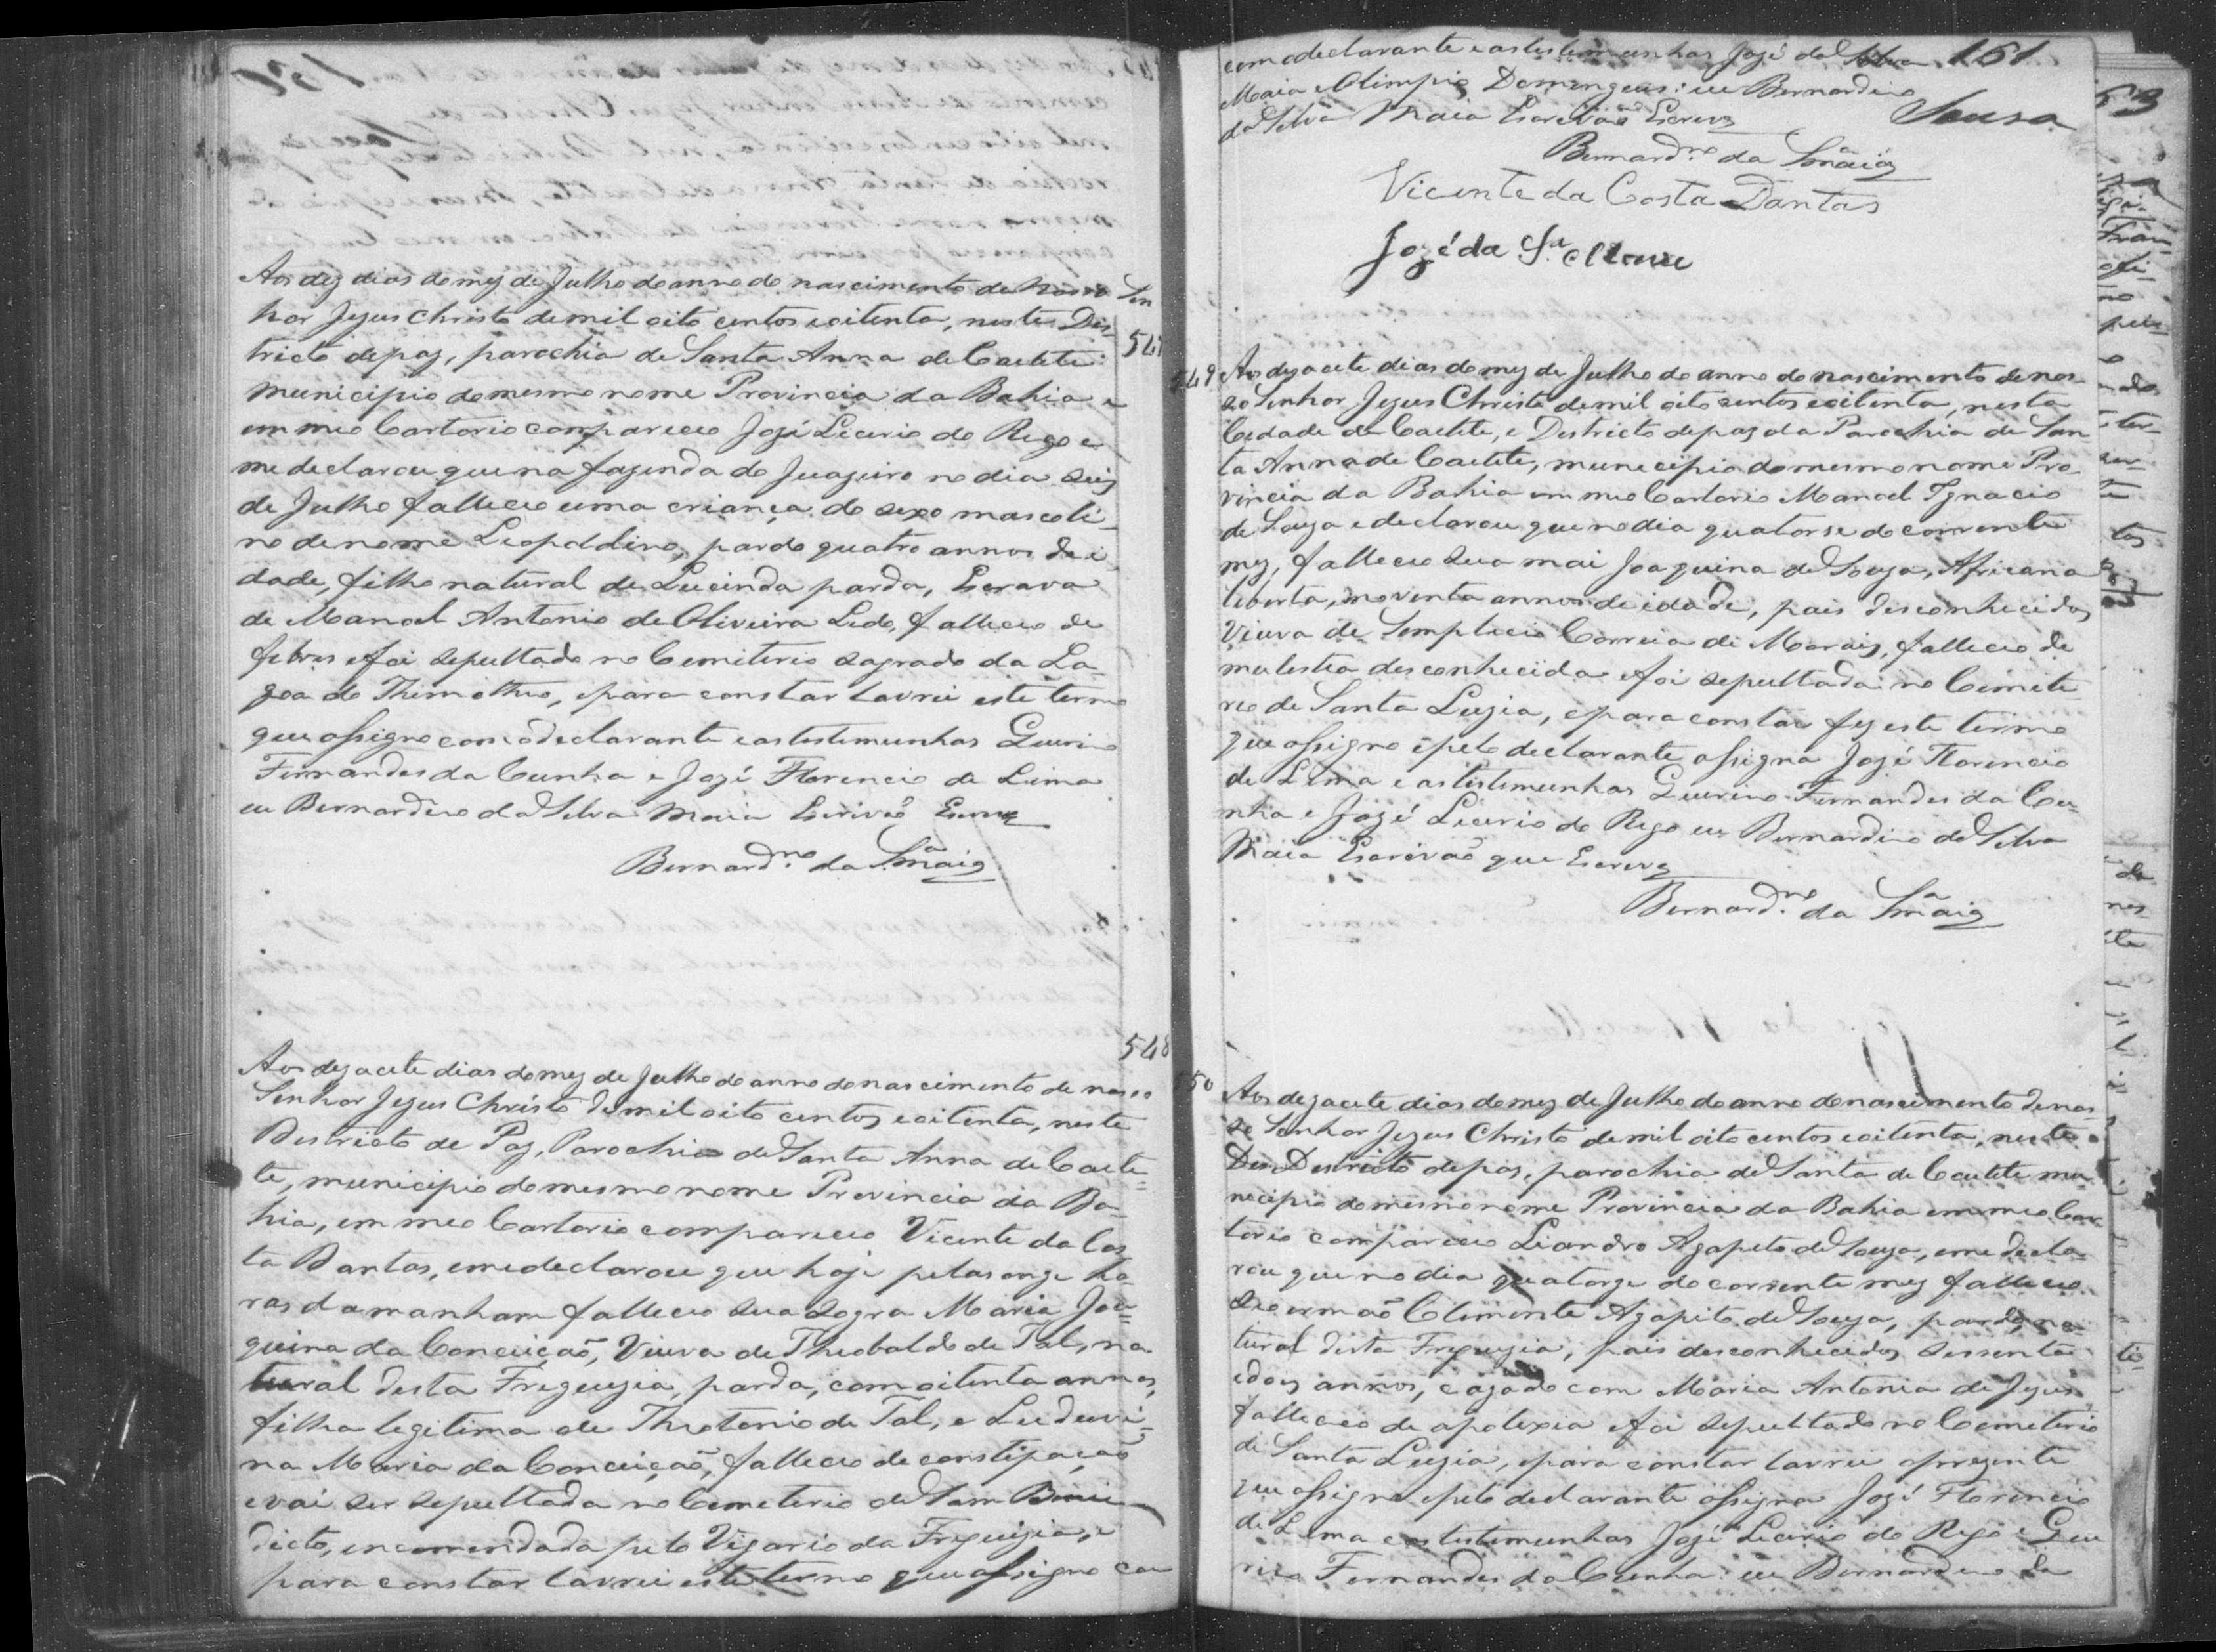 Aos dez dias do mez de Julho do anno do nascimento de nosso Sen
hor Jezus Christo de mil oito centos e oitenta, neste Dis-
tricto de paz, parochia de Santa Anna de Caetete
547
municipio do mesmo nome Provincia da Bahia e
em meo Cartorio compareceo José Licerio do Rego e
me declarou que na fazenda do Juazeiro no dia seis
de Julho falleceo uma criança do sexo mascoli-
no de nome Leopoldino, pardo quatro annos de i-
dade, filho natural de Lucinda parda, Escrava
de Manoel Antonio de Oliveira Ledo, falleceo de
febres e foi sepultado no Cemiterio sagrado da La-
goa do Thimotheo, e para constar lavrei este termo
que assigno com o declarante e as testemunhas Guerino
Fernandes da Cunha e José Florencio de Lima
eu Bernardino da Silva Maia Escrivão Escrevy
Bernard.no da S.a Maia
548
Aos dezacete dias do mez de Julho do anno do nascimento de nosso
Senhor Jezus Christo de mil oito centos e oitenta, neste
Districto de Paz, Parochia de Santa Anna de Caete-
te, municipio do mesmo nome Provincia da Ba-
hia, em meo Cartorio compareceo Vicente da Cos-
ta Dantas, e me declarou que hoje pelas onze ho-
ras da manham falleceo sua sogra Maria Joa-
quina da Conceição, Viuva de Theobaldo de Tal, na
tural desta Freguezia, parda, com oitenta annos,
filha legitima de Theotonio de Tal, e Luduvi-
na Maria da Conceição, falleceo de constipação
e vai ser sepultada no Cemeterio de Sam Bene
dicto, encomendada pelo Vigario da Freguizia, e
para constar lavrei este termo que assigno com
com o declarante e as testemunhas José da Silva 151
Maia e Olimpio Domingues: eu Bernardino
da Silva Maia Escrivão Escrevy
Sousa
Bernard.no da S.a Maia
Vicente da Costa Dantas
Jozé da S.a
549
Aos dezacete dias do mez de Julho do anno do nascimento de nos-
so Senhor Jezus Christo de mil oito centos e oitenta, nesta
Cidade de Caetete, e Districto de paz da Parochia de San
ta Anna de Caetete, municipio do mesmo nome Pro-
vincia da Bahia em meo Cartorio Manoel Ignacio
de Souza e declarou que no dia quatorse do corrente
mez, falleceo sua mai Joaquina de Souza, Africana
liberta, noventa annos de idade, pais desconhecidos
Viuva de Semplicio Correia de Morais, falleceo de
mulestia desconhecida e foi sepultada no Cimite
rio de Santa Luzia, e para constar fiz este termo
que assigno e pelo declarante assigna José Florencio
de Lima e as testemunhas Guerino Fernandes da Cu-
nha e José Licerio do Rego eu Bernardino da Silva
Maia Escrivão que Escrevy
Bernard.no da S.a Maia
50
Aos dezacete dias do mez de Julho do anno do nascimento de nos-
so Senhor Jezus Christo de mil oito centos e oitenta, neste
Des Destricto de paz, parochia de Santa de Caetete mu
necipio do mesmo nome Provincia da Bahia em meo Car
torio compareceo Liandro Agapito de Souza, e me decla-
rou que no dia quatorze do corrente mez falleceo
seo irmaõ Clemente Agapito de Souza, pardo, na-
tural desta Freguezia, pais desconhecidos sessenta
e dois annos, cazado com Maria Antonia de Jezus,
falleceo de apolexia e foi sepultado no Cemeterio
de Santa Luzia, e para constar lavrei o prezente
que assigno e pelo declarante assigna José Florencio
de Lima e as testemunhas José Licerio do Rego e Gue
rino Fernandes da Cunha: eu Bernardino da